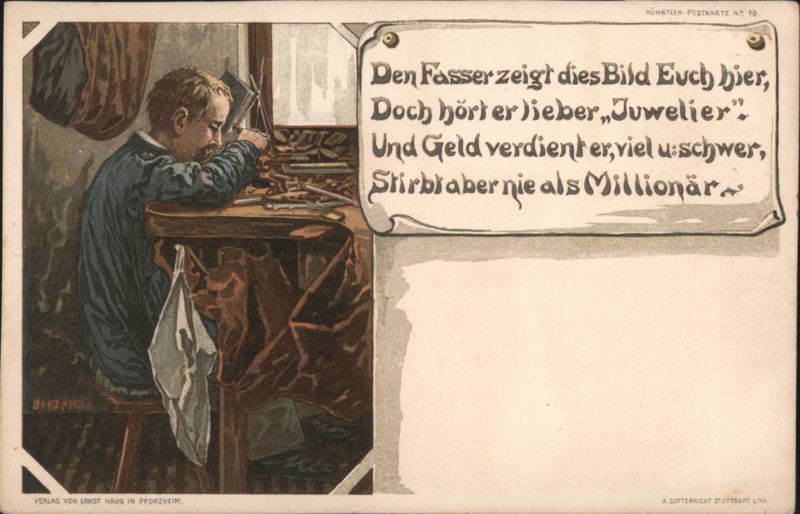 KÜNSTLER-POSTKARTE No 19.
Den Fasser zeigt dies Bild Euch hier,
Doch hört er lieber „Juwelier“.
Und Geld verdient er, viel u: schwer,
Stirbt aber nie als Millionär.
VERLAG VON ERNST HAUG IN PFORZHEIM.
A. GATTERNICHT STUTTGART LITH.